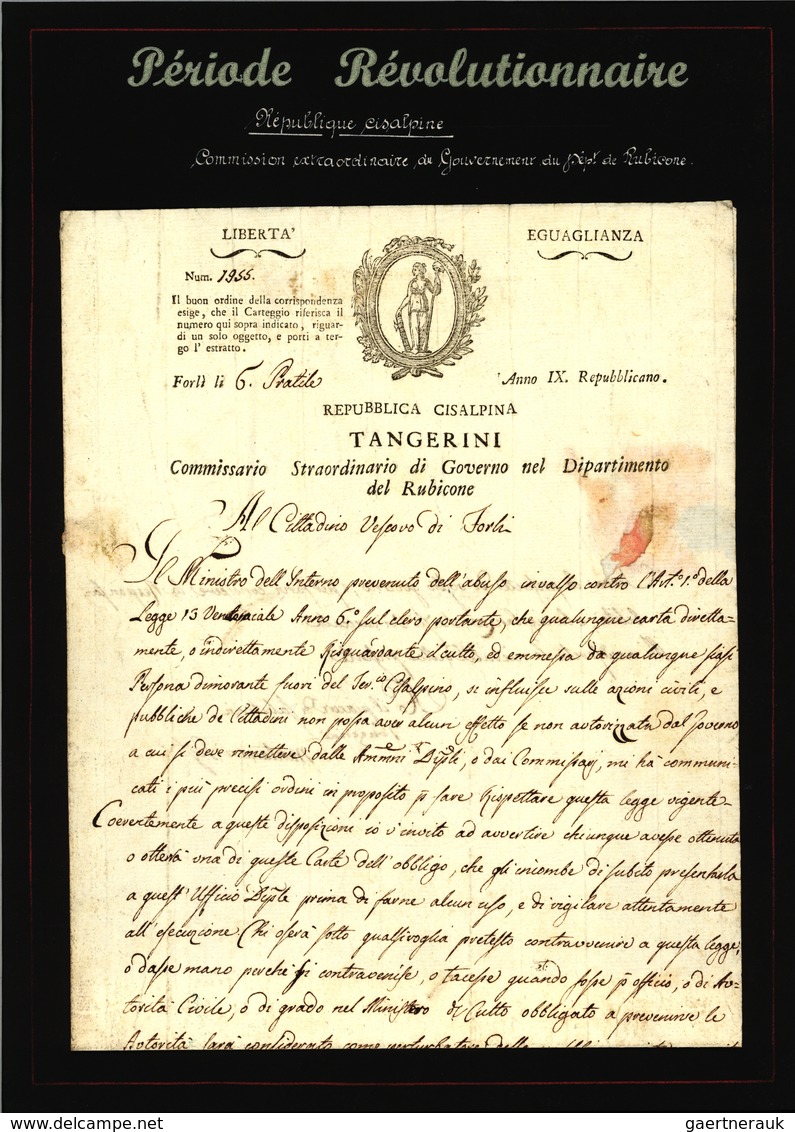 Période Révolutionnaire
République cisalpine
Commission extraordinaire du Gouvernement du Dépt. de Rubicone.
LIBERTA'
EGUAGLIANZA
Num. 1955.
Il buon ordine della corrispondenza
esige, che il Carteggio riferisca il
numero qui sopra indicato, riguar-
di un solo oggetto, e porti a ter-
go l' estratto.
Forlì li 6. Pratile
Anno IX. Repubblicano.
REPUBBLICA CISALPINA
TANGERINI
Commissario Straordinario di Governo nel Dipartimento
del Rubicone
Al Cittadino Vescovo di Forlì
Il Ministro dell'Interno prevenuto dell'abuso invalso contro l'Art.º 1.º della
Legge 13 Vendemiale Anno 6.º sul clero portante, che qualunque carta diretta-
mente, o indirettamente Risguardante il culto, ed emmessa da qualunque siasi
Persona dimorante fuori del Ter.º Cisalpino, si influisse sulle azioni civili, e
pubbliche de Cittadini non possa aver alcun effetto se non autorizzata dal Governo
a cui si deve rimettere dalle Ammni Dipli, o dai Commissarj, mi hà communi-
cati i più precisi ordini in proposito p fare Rispettare questa legge vigente-
Coerentemente a queste disposizioni io v'invito ad avvertire chiunque avesse ottenuta
o otterrà una di queste Carte dell'obbligo, che gli incombe di subito presentarla
a quest' Ufficio Diple prima di farne alcun uso, e di vigilare attentamente
all' esecuzione Chi oserà sotto qualsivoglia pretesto contravvenire a questa legge,
o dasse mano perchè si contravenise, o tacesse quando fosse p officio, o di Au-
torità Civile, o di grado nel Ministero di Culto obbligato a prevenirne le
Autorità sarà considerato come perturbatore della
gaertnerauk